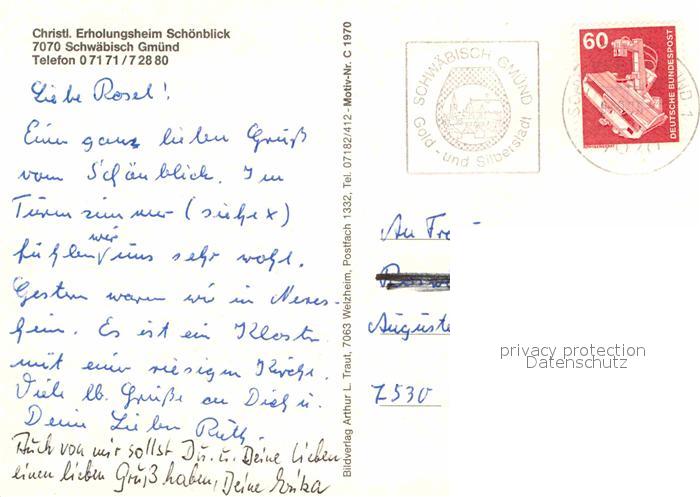 Christl. Erholungsheim Schönblick
7070 Schwäbisch Gmünd
Telefon 0 71 71 / 7 28 80
Liebe Rosel!
Einen ganz lieben Gruß
vom Schönblick. Im
Turmzimmer (siehe x)
fühlen wir uns sehr wohl.
Gestern waren wir in Neres-
heim. Es ist ein Kloster
mit einer riesigen Kirche.
Viele lb. Grüße an Dich u.
Deine Lieben Ruth.
Auch von mir sollst Du u. Deine Lieben
einen lieben Gruß haben, Deine Erika
Bildverlag Arthur L. Traut, 7063 Welzheim, Postfach 1332, Tel. 07182/412 - Motiv-Nr. C 1970
SCHWÄBISCH GMÜND
Gold- und Silberstadt
60
DEUTSCHE BUNDESPOST
An Fr
Auguste
7530
privacy protection
Datenschutz